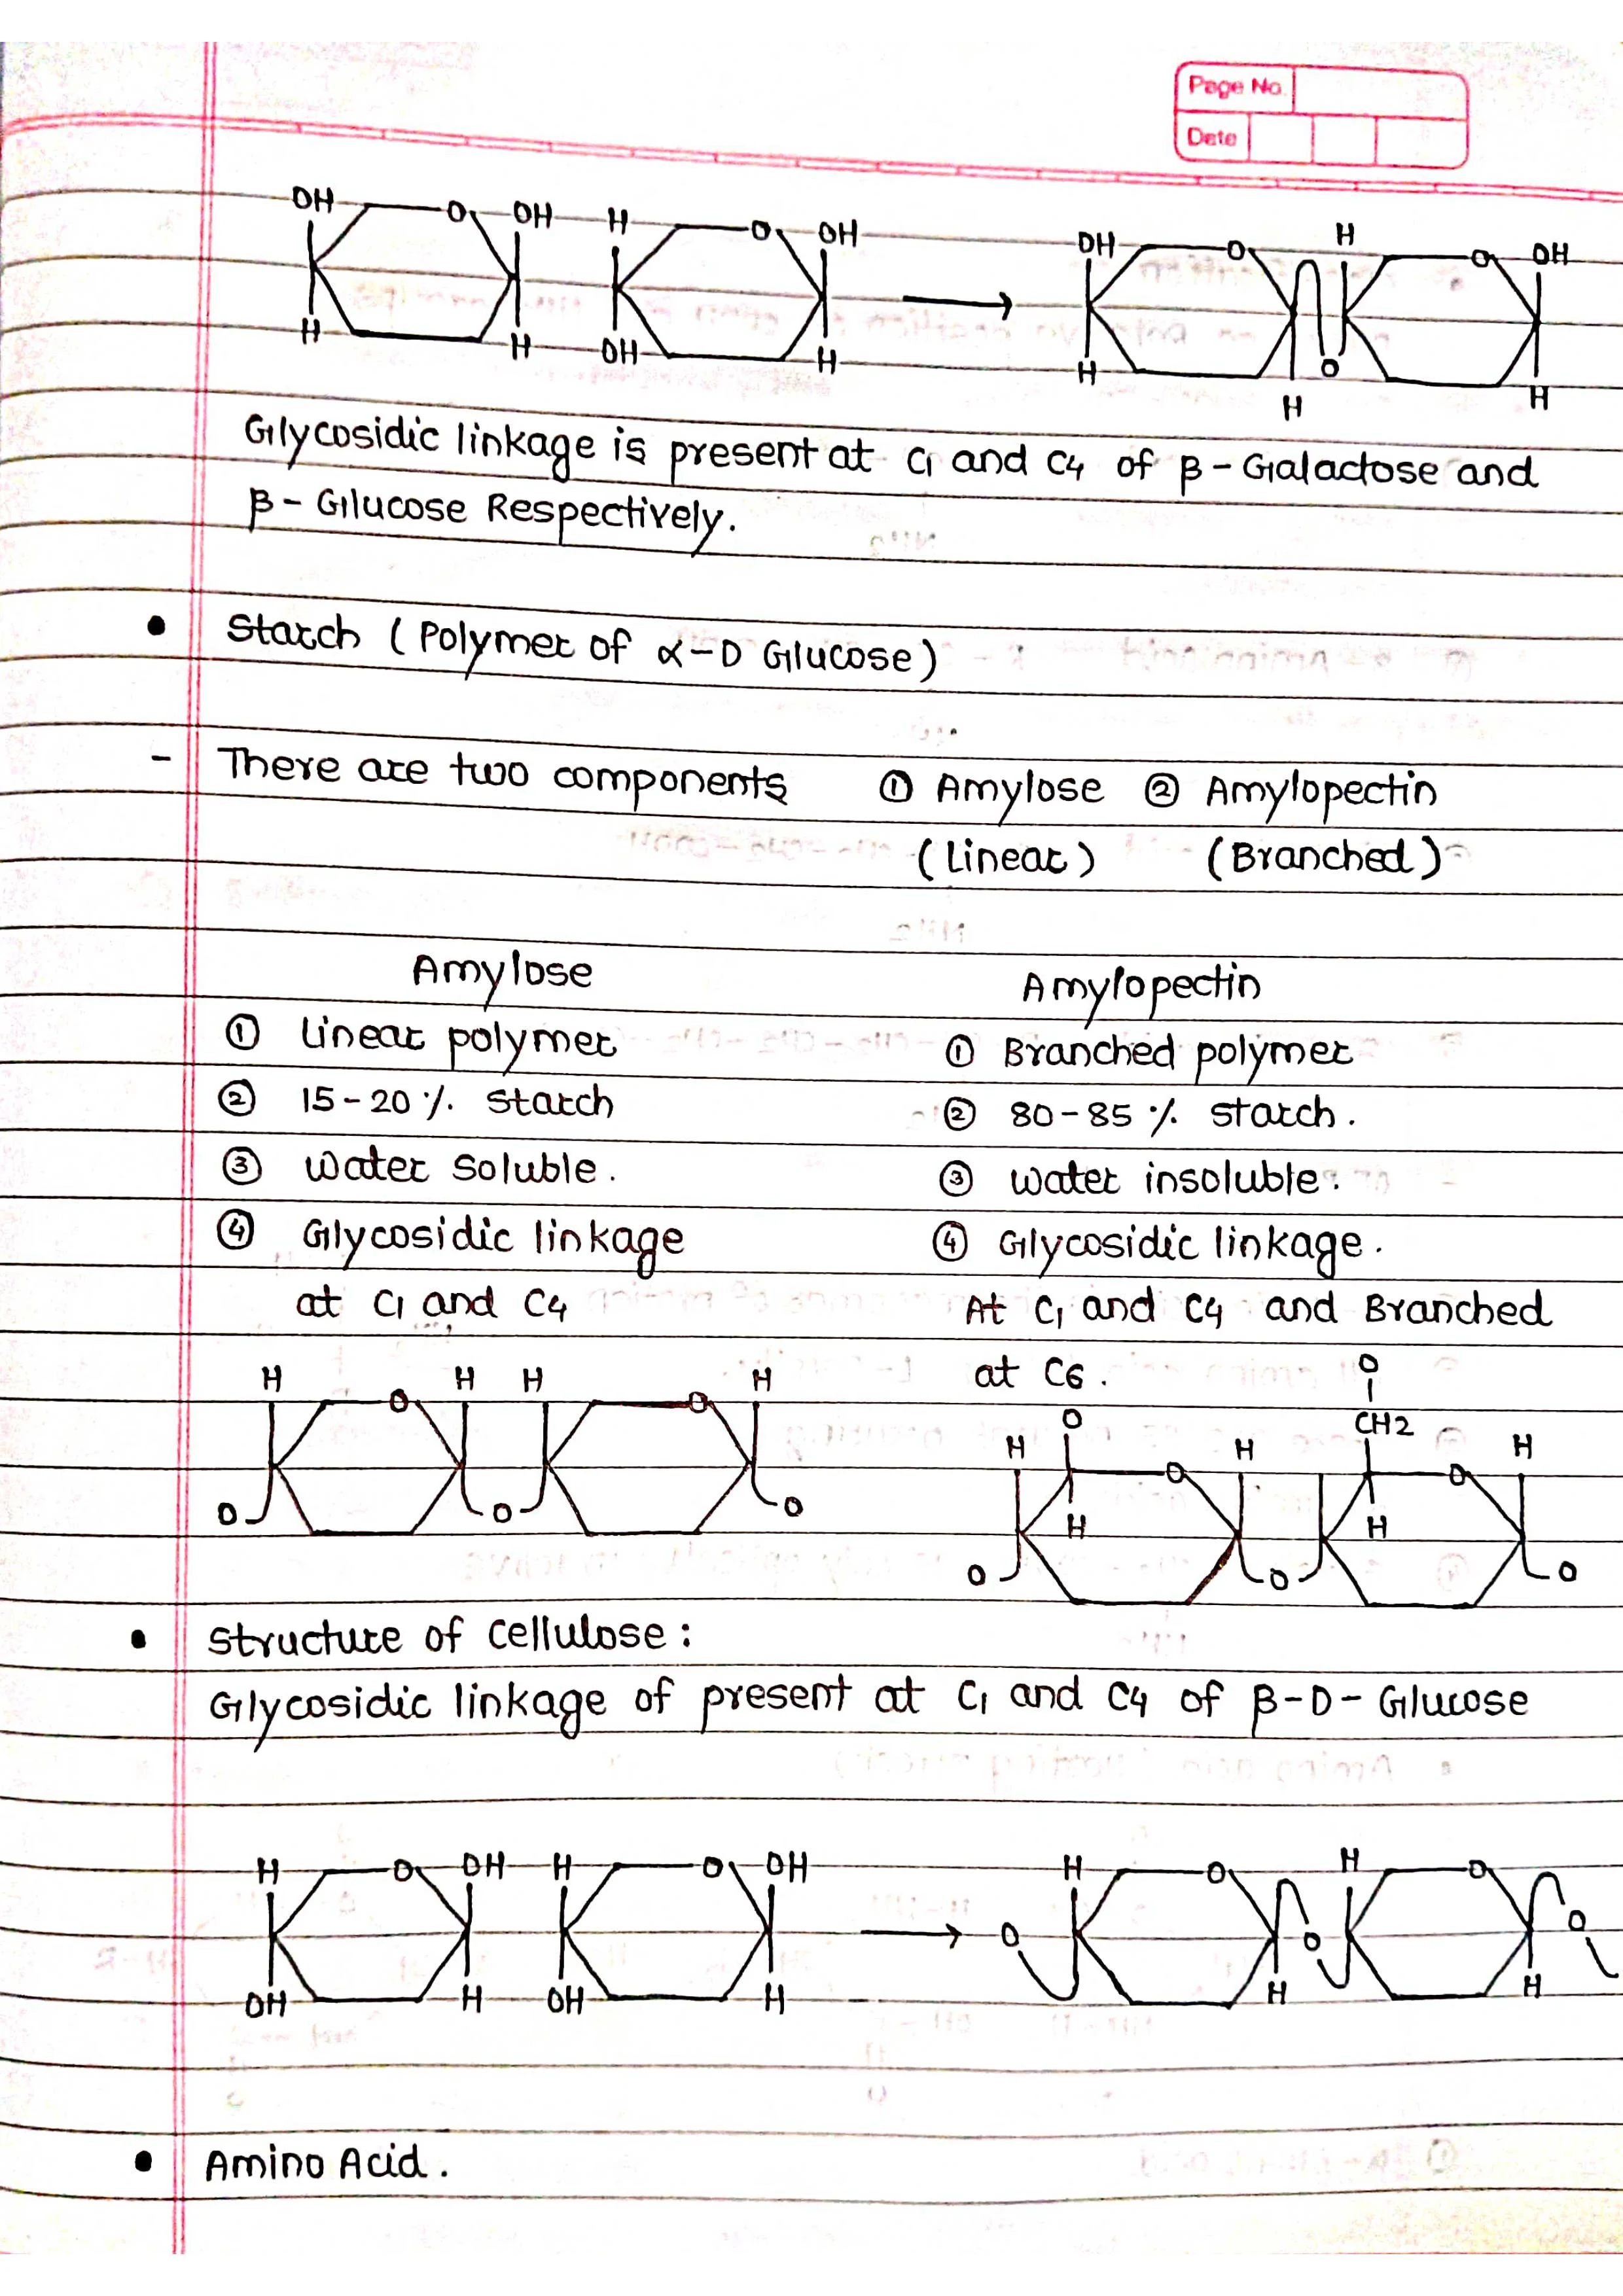 Page No.
Date
OH O OH H O OH OH O H O OH
H H OH H H O H
H
Glycosidic linkage is present at C1 and C4 of β-Galactose and
β-Glucose Respectively.
• Starch (Polymer of α-D Glucose)
- There are two components ① Amylose ② Amylopectin
(Linear) (Branched)
Amylose
① Linear polymer
② 15-20% starch
③ Water soluble.
④ Glycosidic linkage
at C1 and C4
H O H H O H
O O O
Amylopectin
① Branched polymer
② 80-85% starch.
③ water insoluble.
④ Glycosidic linkage.
At C1 and C4 and Branched
at C6.
O
O CH2
H H H
O O
H H
O O O
• Structure of Cellulose:
Glycosidic linkage of present at C1 and C4 of β-D-Glucose
H O OH H O OH H O H O
O O O
OH H OH H H H
• Amino Acid.